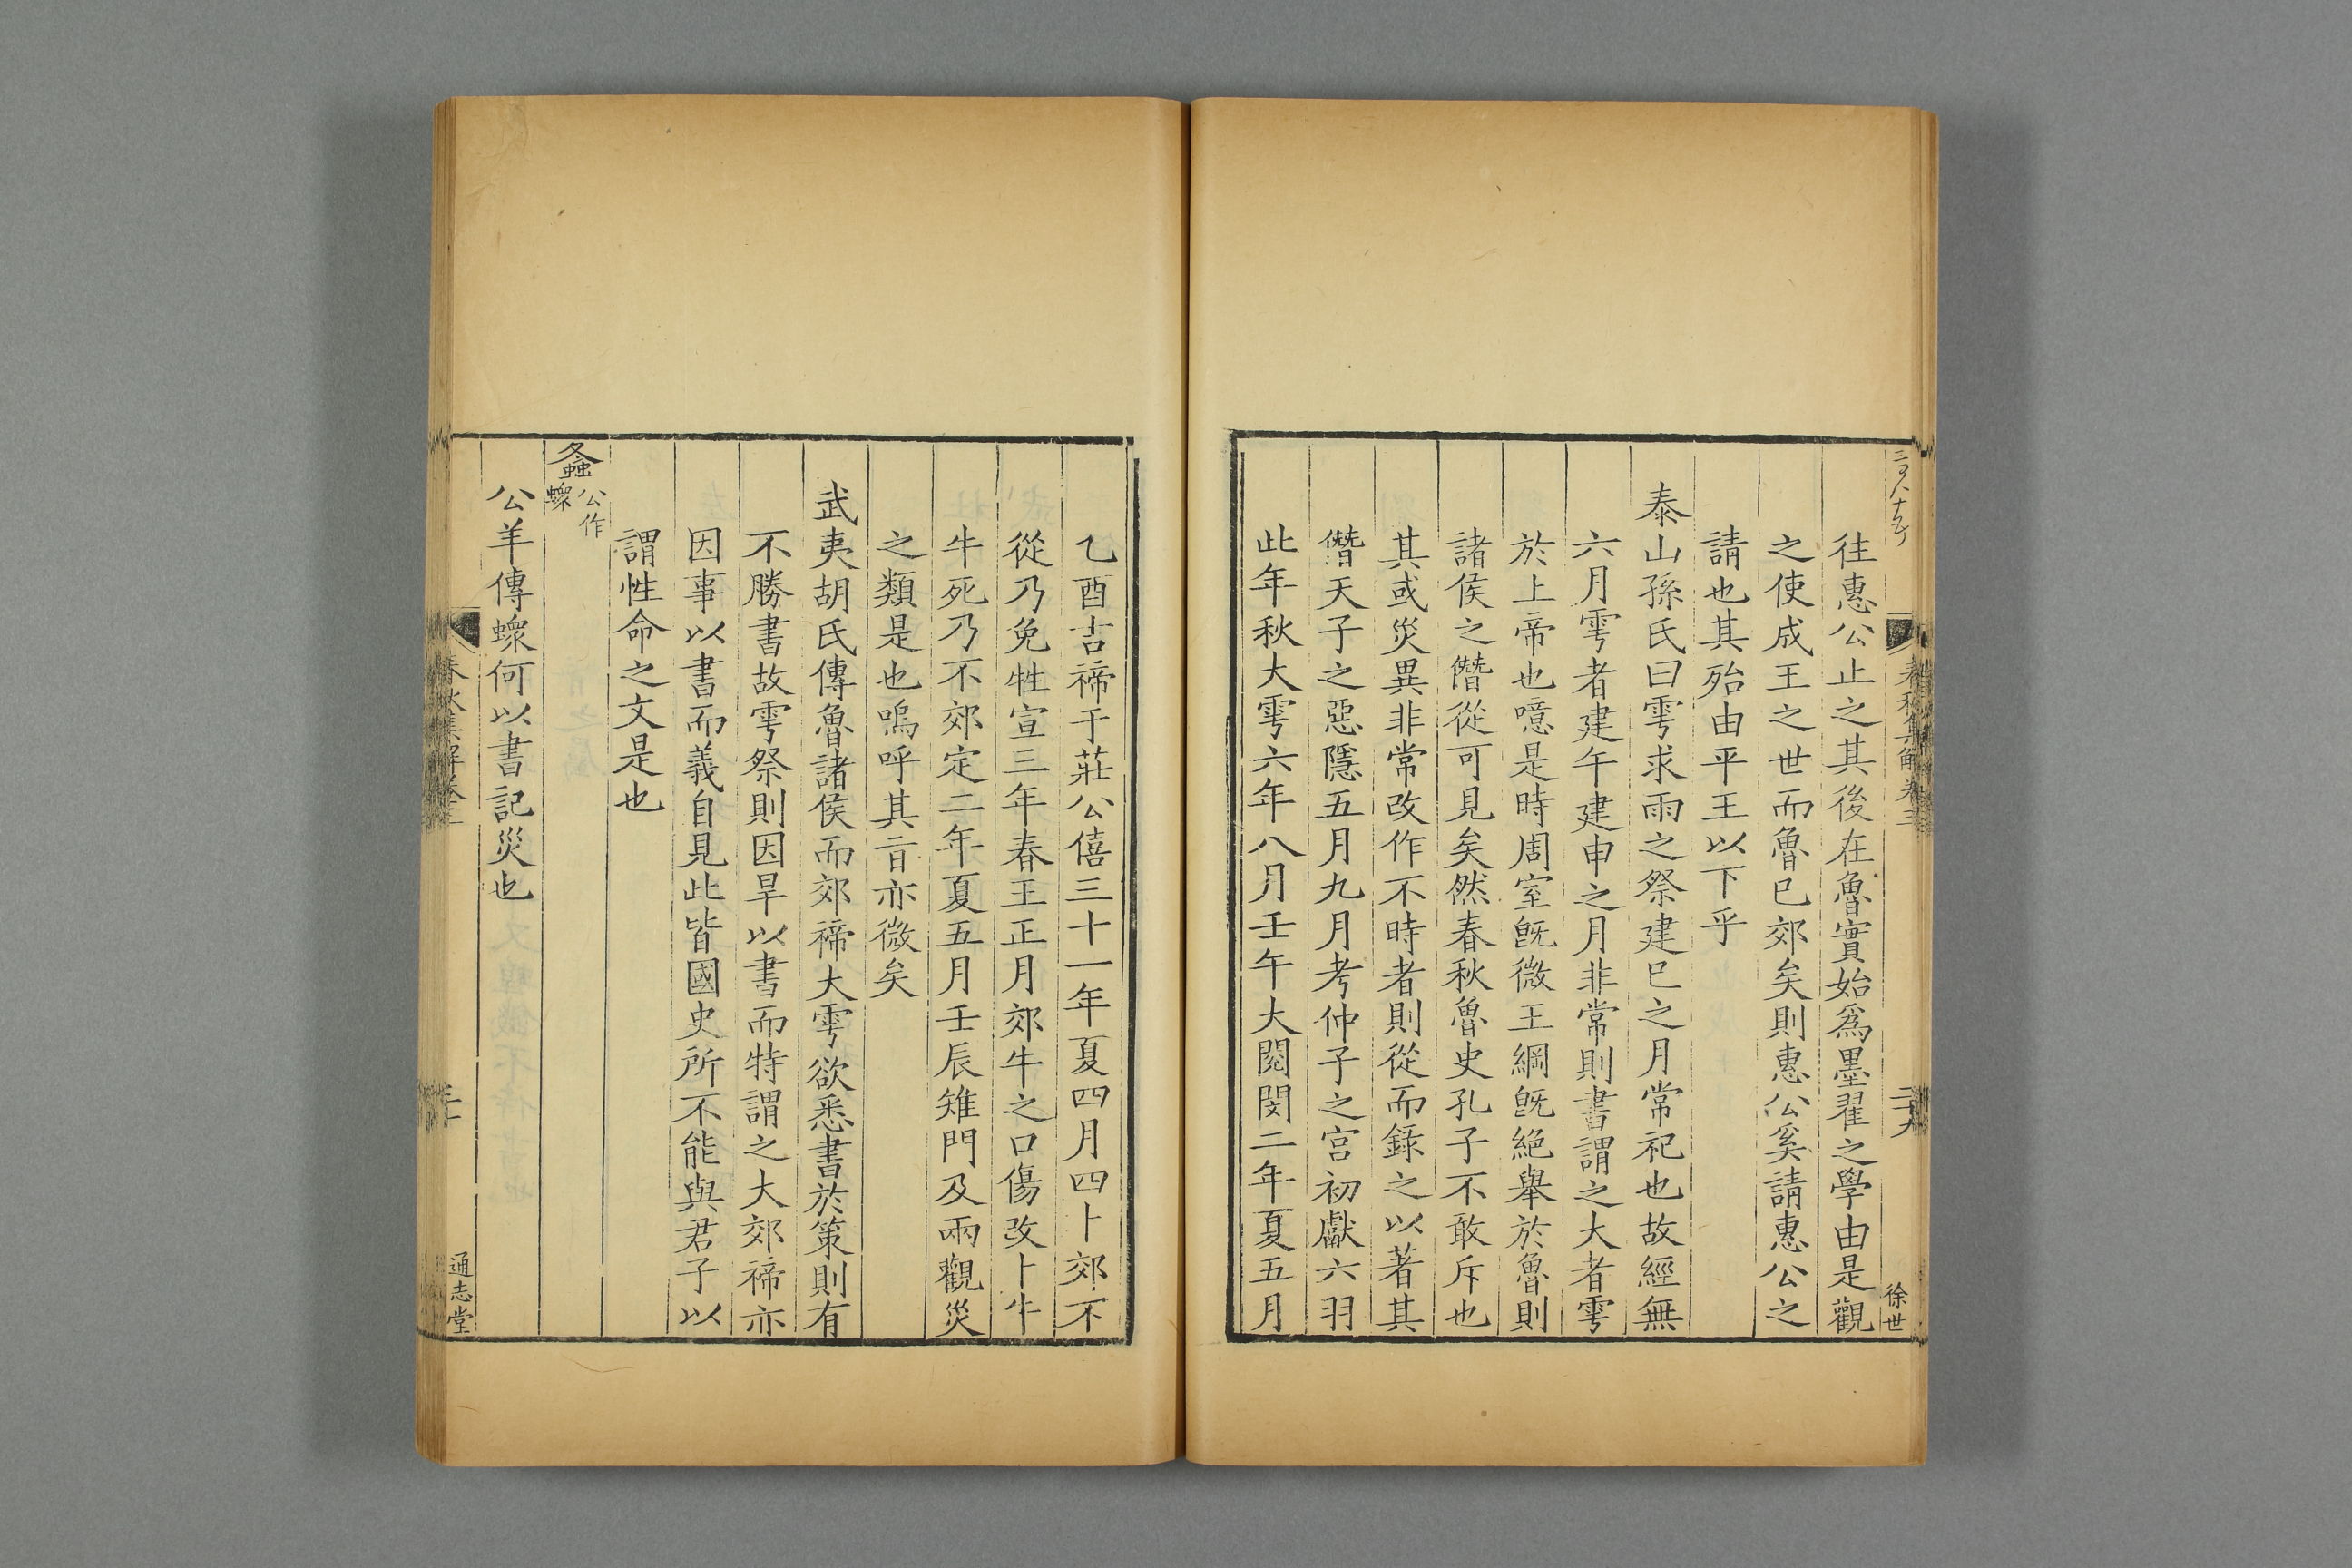 春秋集解卷三
二十九
徐世
往惠公止之其後在魯實始爲墨翟之學由是觀
之使成王之世而魯已郊矣則惠公奚請惠公之
請也其殆由平王以下乎
泰山孫氏曰雩求雨之祭建巳之月常祀也故經無
六月雩者建午建申之月非常則書謂之大者雩
於上帝也噫是時周室旣微王綱旣絕舉於魯則
諸侯之僭從可見矣然春秋魯史孔子不敢斥也
其或災異非常改作不時者則從而錄之以著其
僭天子之惡隱五月九月考仲子之宮初獻六羽
此年秋大雩六年八月壬午大閱閔二年夏五月
乙酉吉禘于莊公僖三十一年夏四月四卜郊不
從乃免牲宣三年春王正月郊牛之口傷改卜牛
牛死乃不郊定二年夏五月壬辰雉門及兩觀災
之類是也嗚呼其㫖亦微矣
武夷胡氏傳魯諸侯而郊禘大雩欲悉書於策則有
不勝書故雩祭則因旱以書而特謂之大郊禘亦
因事以書而義自見此皆國史所不能與君子以
謂性命之文是也
螽公作䗥
公羊傳䗥何以書記災也
春秋集解卷三
通志堂